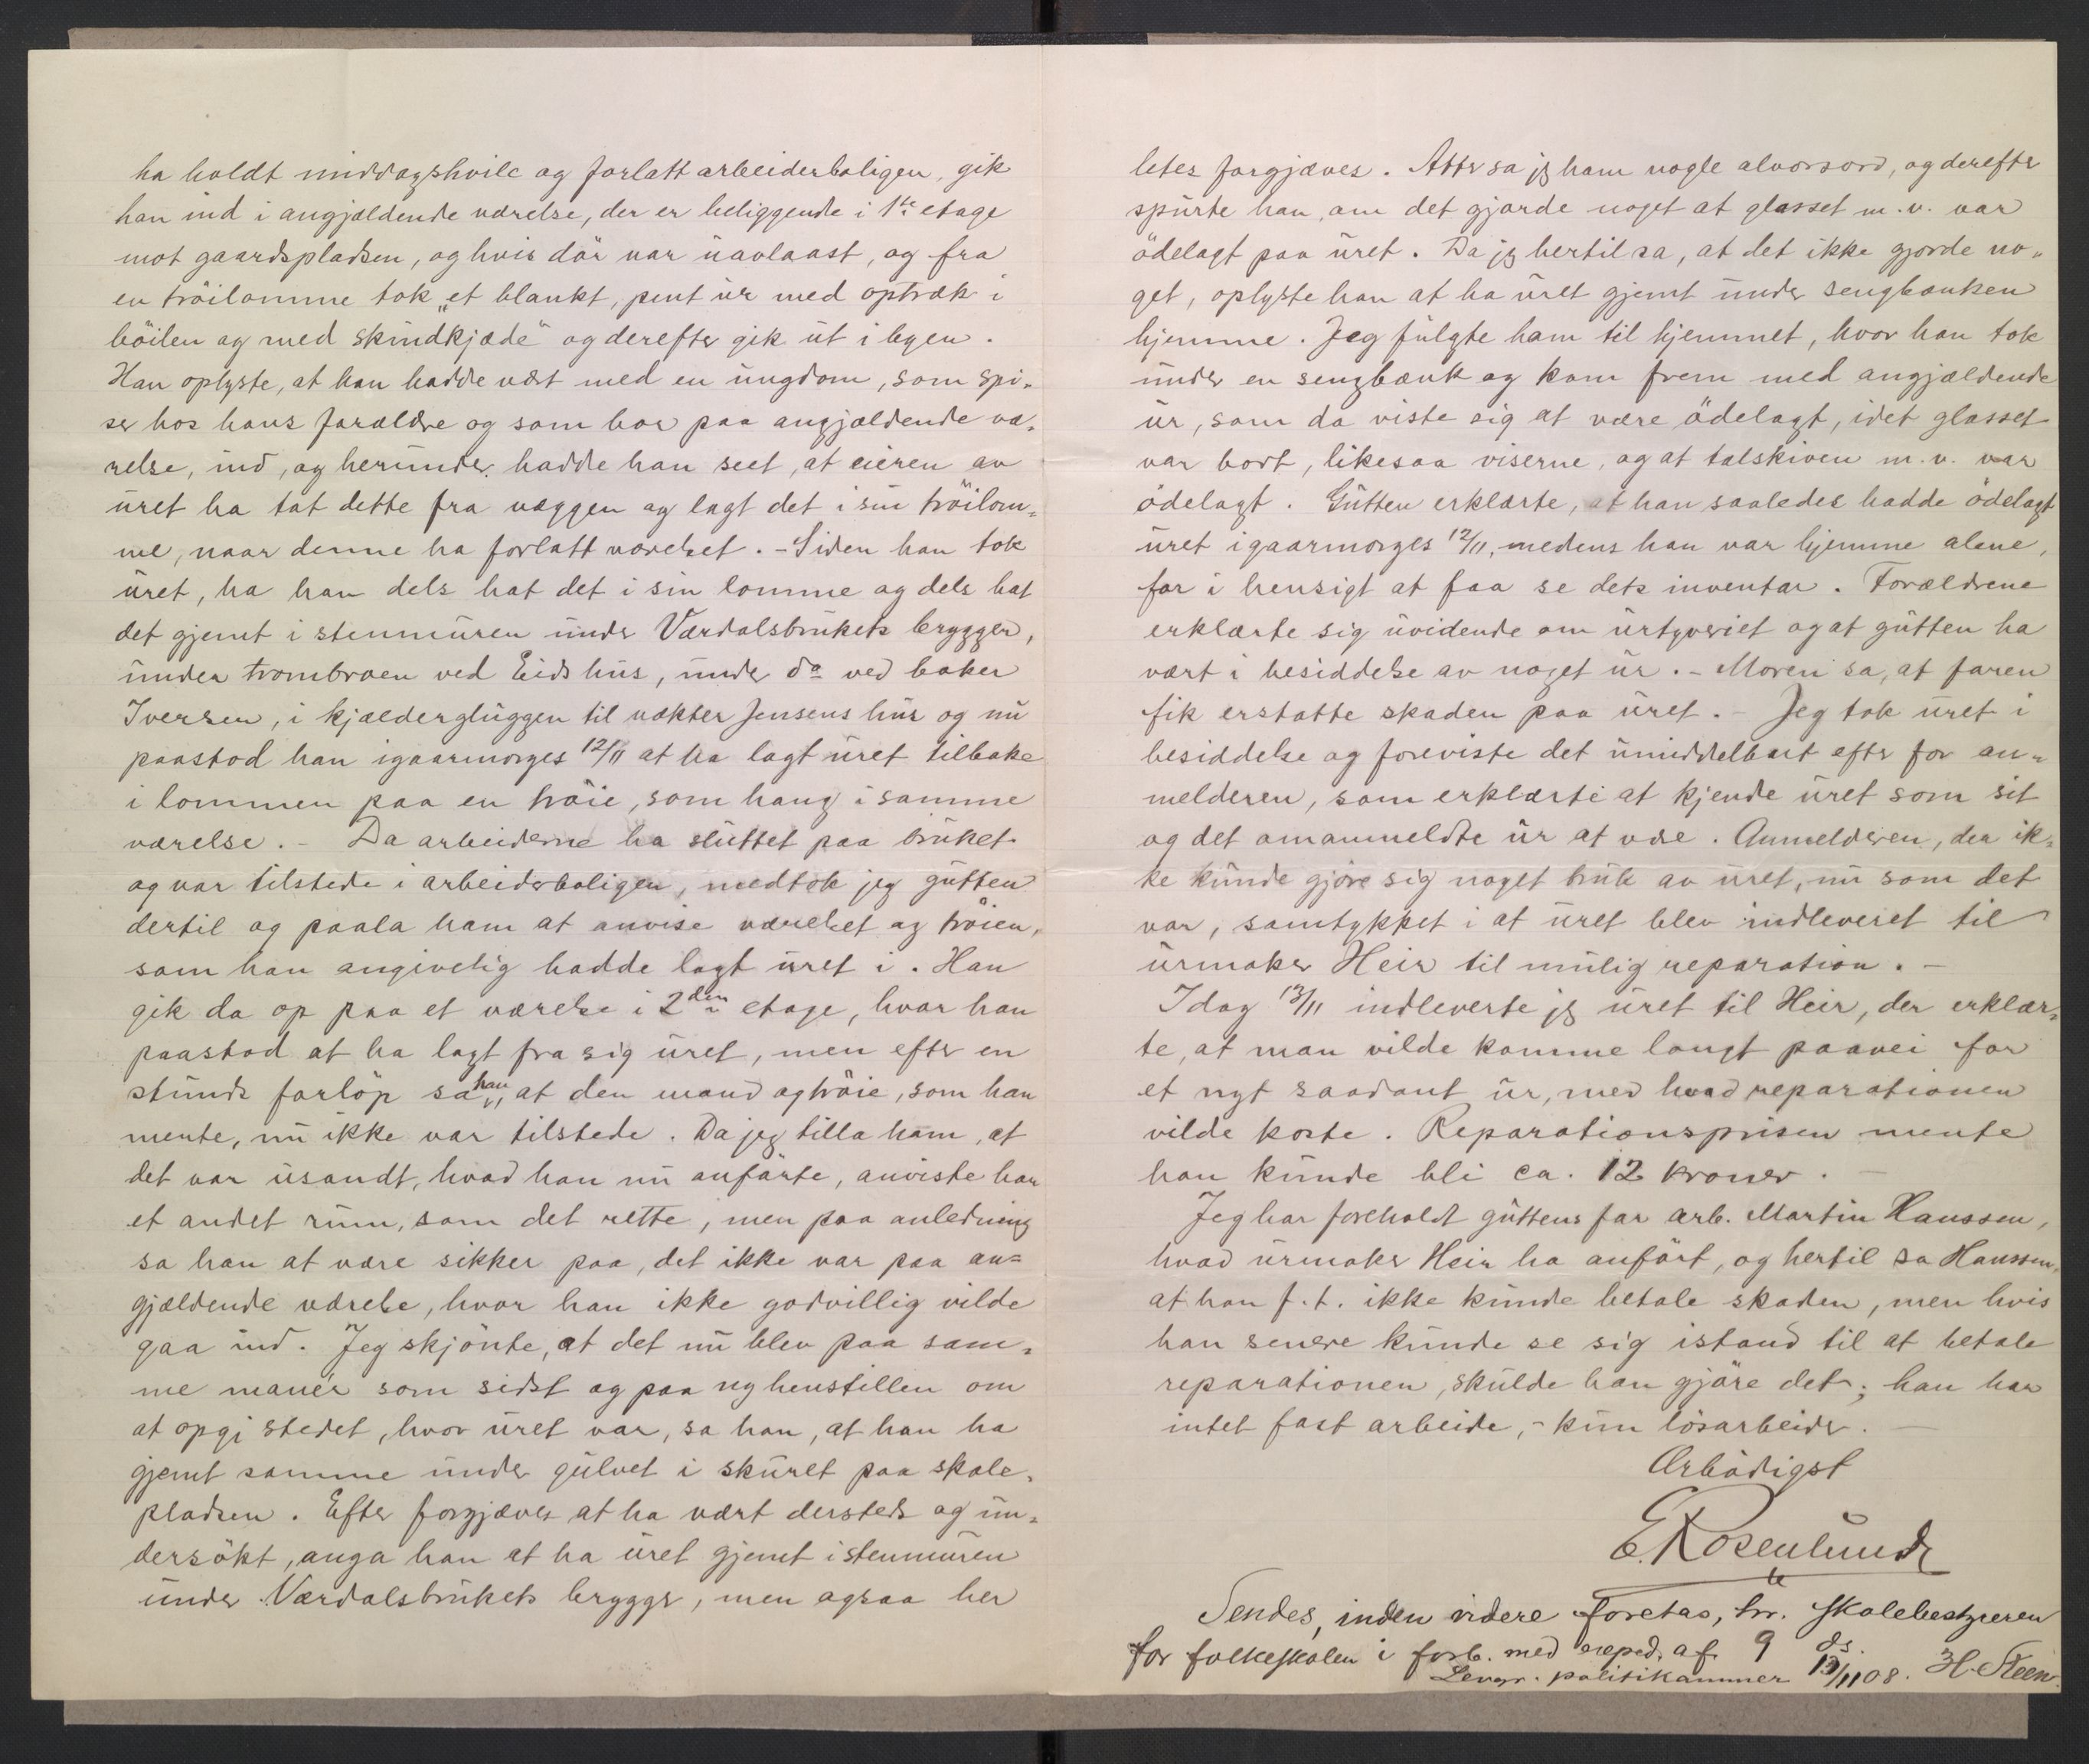 ha holdt middagshvile og forlatt arbeiderboligen, gik
han ind i angjældende værelse, der er beliggende i 1ste etage
mot gaardspladsen, og hvis dör var uavlaast, og fra
en tröilomme tok „et blankt, pent ur med optræk i
böilen og med skindkjæde" og derefter gik ut i byen.
Han oplyste, at han hadde vært med en ungdom, som spi-
ser hos hans forældre og som bor paa angjældende væ-
relse, ind, og herunder hadde han seet, at eieren av
uret ha tat dette fra væggen og lagt det i sin tröilom-
me, naar denne ha forlatt værelset. – Siden han tok
uret, ha han dels hat det i sin lomme og dels hat
det gjemt i stenmuren under Værdalsbrukets brygger,
under trombroen ved Eids hus, under do ved baker
Iversen, i kjældergluggen til vækter Jensens hus og nu
paastod han igaarmorges 12/11 at ha lagt uret tilbake
i lommen paa en tröie, som hang i samme
værelse. – Da arbeiderne ha sluttet paa bruket
og var tilstede i arbeiderboligen, medtok jeg gutten
dertil og paala ham at anvise værelset og tröien,
som han angivelig hadde lagt uret i. Han
gik da op paa et værelse i 2den etage, hvor han
paastod at ha lagt fra sig uret, men efter en
stunds forlöp sa han, at den mand og tröie, som han
mente, nu ikke var tilstede. Da jeg tilla ham, at
det var usandt, hvad han nu anförte, anviste han
et andet rum, som det rette, men paa anledning
sa han at være sikker paa, det ikke var paa an-
gjældende værelse, hvor han ikke godvillig vilde
gaa ind. Jeg skjönte, at det nu blev paa sam-
me manér som sidst og paa ny henstillen om
at opgi stedet, hvor uret var, sa han, at han ha
gjemt samme under gulvet i skuret paa skole-
pladsen. Efter forgjæves at ha vært dersteds og un-
dersökt, anga han at ha uret gjemt i stenmuren
under Værdalsbrukets brygge, men ogsaa her
letes forgjæves. Atter sa jeg ham nogle alvorsord, og derefter
spurte han, om det gjorde noget at glasset m. v. var
ödelagt paa uret. Da jeg hertil sa, at det ikke gjorde no-
get, oplyste han at ha uret gjemt under sengbænken
hjemme. Jeg fulgte ham til hjemmet, hvor han tok
under en sengbænk og kom frem med angjældende
ur, som da viste sig at være ödelagt, idet glasset
var bort, likesaa viserne, og at talskiven m. v. var
ödelagt. Gutten erklærte, at han saaledes hadde ödelagt
uret igaarmorges 12/11, medens han var hjemme alene,
for i hensigt at faa se dets inventar. Forældrene
erklærte sig uvidende om urtyveriet og at gutten ha
vært i besiddelse av noget ur. – Moren sa, at faren
fik erstatte skaden paa uret. – Jeg tok uret i
besiddelse og foreviste det umiddelbart efter for an-
melderen, som erklærte at kjende uret som sit
og det omanmeldte ur at være. Anmelderen, der ik-
ke kunde gjöre sig noget bruk av uret, nu som det
var, samtykket i at uret blev indleveret til
urmaker Heir til mulig reparation. –
Idag 13/11 indleverte jeg uret til Heir, der erklær-
te, at man vilde komme langt paavei for
et nyt saadant ur, med hvad reparationen
vilde koste. Reparationsprisen mente
han kunde bli ca. 12 kroner. –
Jeg har foreholdt guttens far arb. Martin Hanssen,
hvad urmaker Heir ha anfört, og hertil sa Hanssen,
at han f. t. ikke kunde betale skaden, men hvis
han senere kunde se sig istand til at betale
reparationen, skulde han gjöre det; han har
intet fast arbeide, – kun lösarbeider. –
Ærbödigst
E. Rosenlund
Sendes, inden videre foretas, hr. skolebestyreren
for folkeskolen i forb. med exped. af 9 ds.
Levgr. politikammer 13/11 08. H. Steen